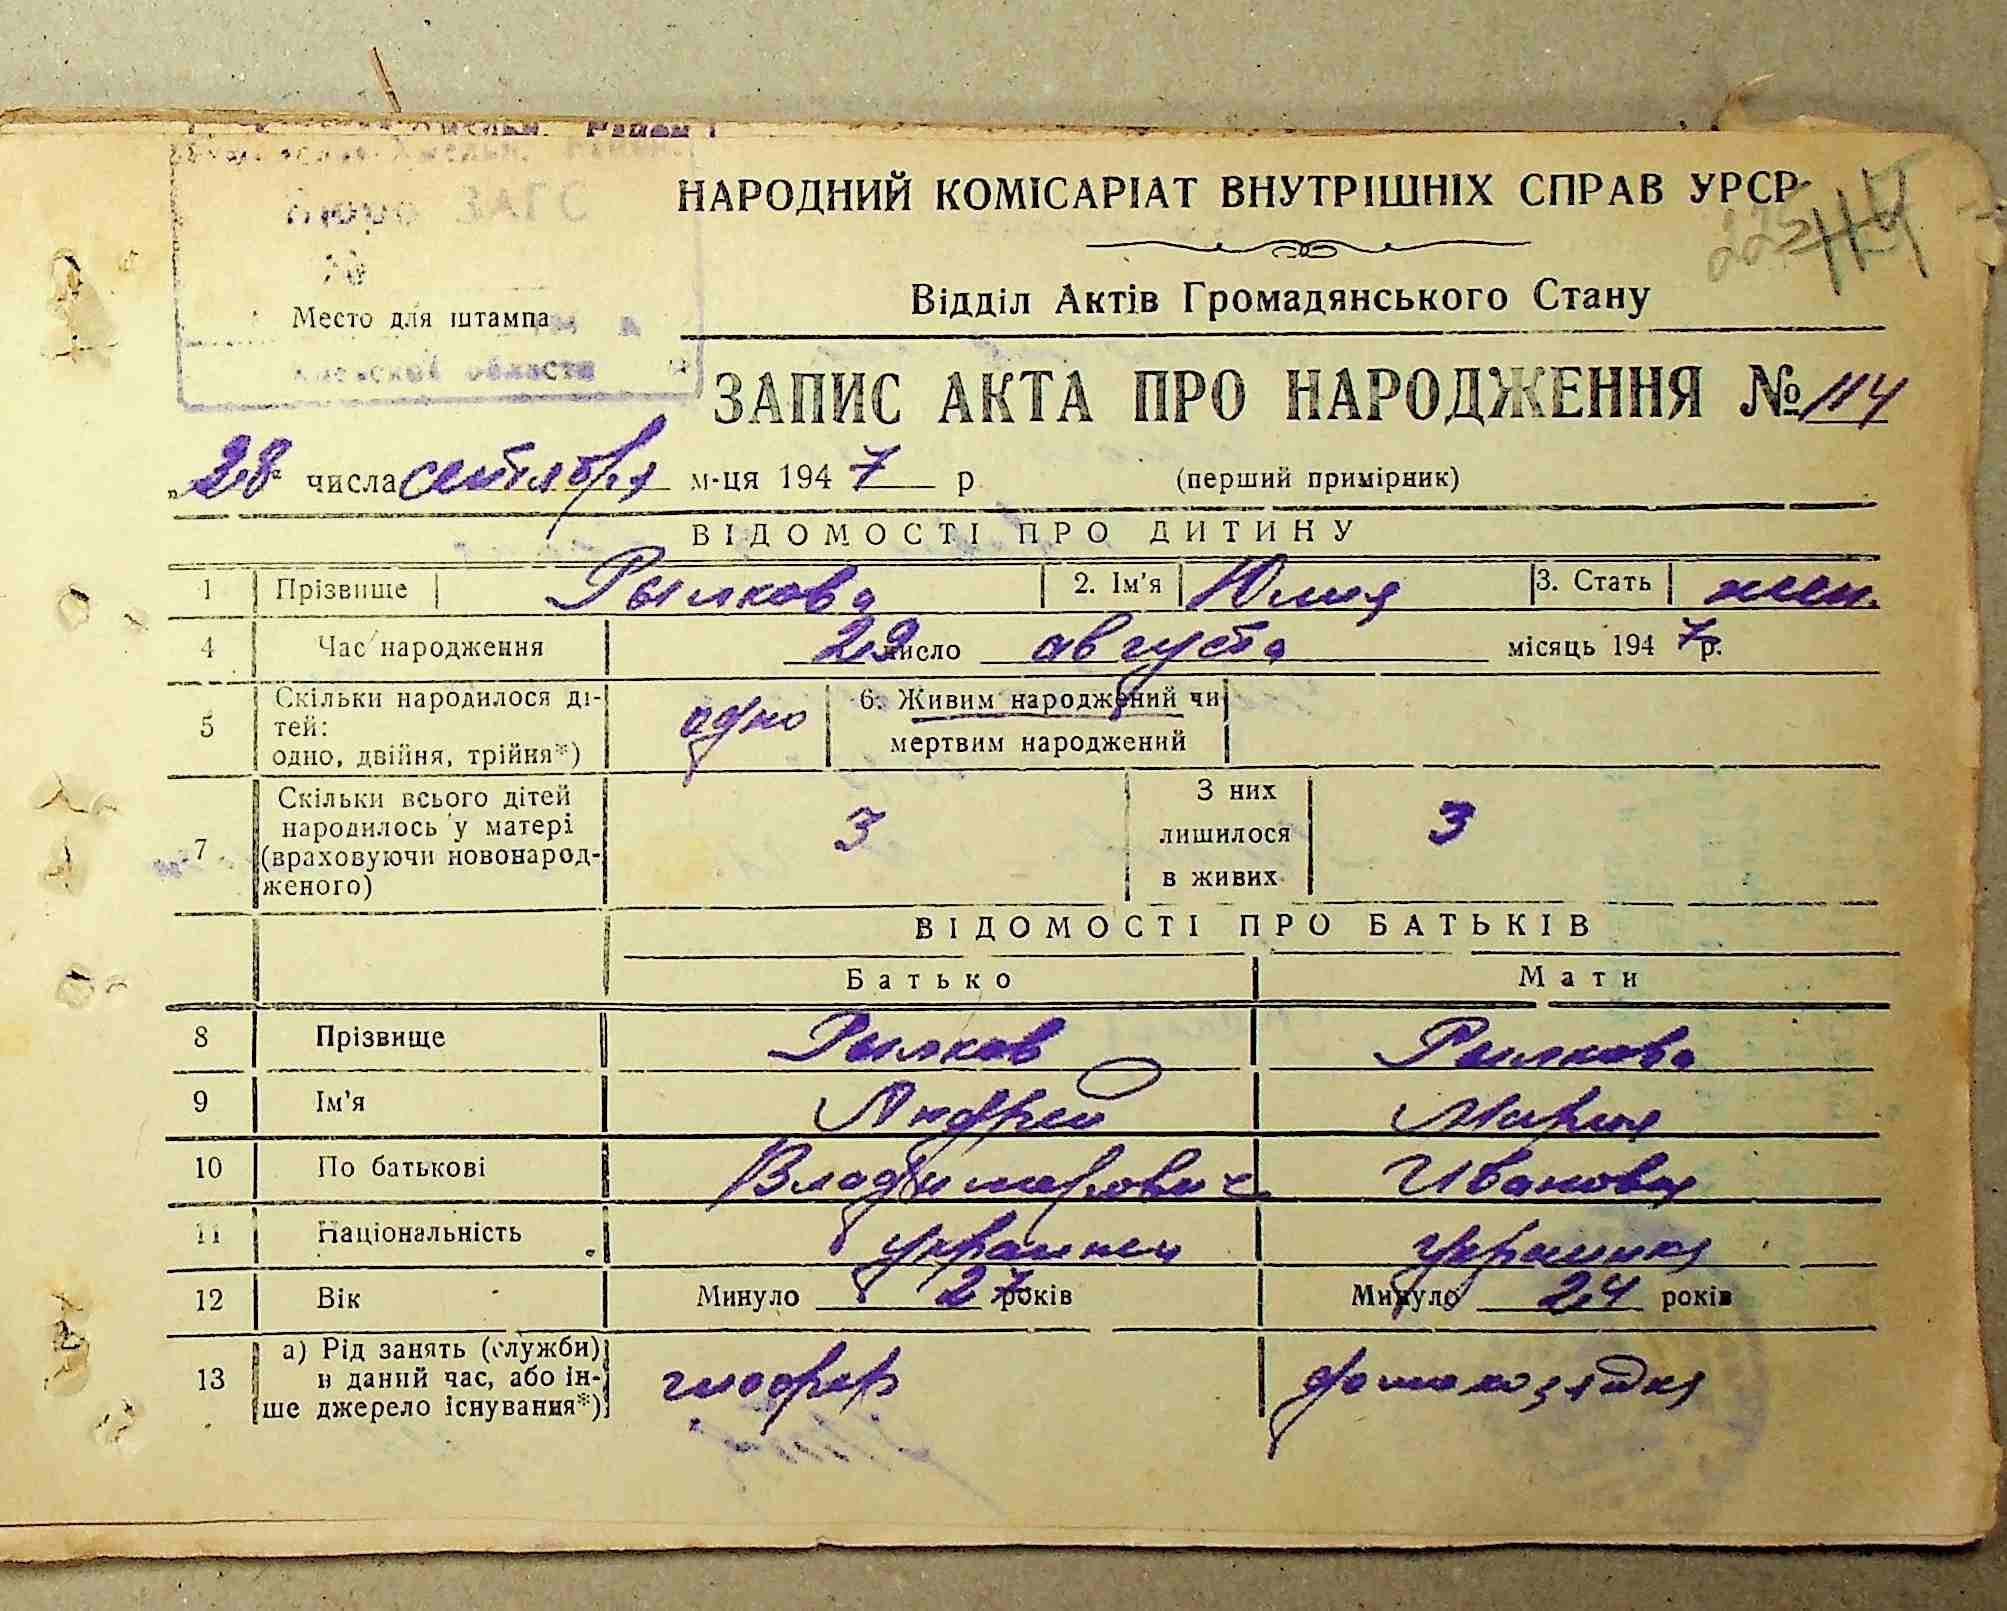 НАРОДНИЙ КОМІСАРІАТ ВНУТРІШНІХ СПРАВ УРСР
225
ЗАГС
Место для штампа
Відділ Актів Громадянського Стану
области
ЗАПИС АКТА ПРО НАРОДЖЕННЯ № 114
„28“ числа сентября м-ця 1947 р (перший примірник)
ВІДОМОСТІ ПРО ДИТИНУ
1 Прізвище Рылкова 2. Ім'я Юлия 3. Стать жен.
4 Час народження 29 число августа місяць 1947 р.
5 Скільки народилося ді-
тей:
одно, двійня, трійня*) одно 6. Живим народжений чи
мертвим народжений
7 Скільки всього дітей
народилось у матері
(враховуючи новонарод-
женого) 3 З них
лишилося
в живих 3
ВІДОМОСТІ ПРО БАТЬКІВ
Батько Мати
8 Прізвище Рылков Рылкова
9 Ім'я Андрей Мария
10 По батькові Владимирович Ивановна
11 Національність украинец украинка
12 Вік Минуло 27 років Минуло 24 років
13 а) Рід занять (служби)
в даний час, або ін-
ше джерело існування*) шофер домохозяйка